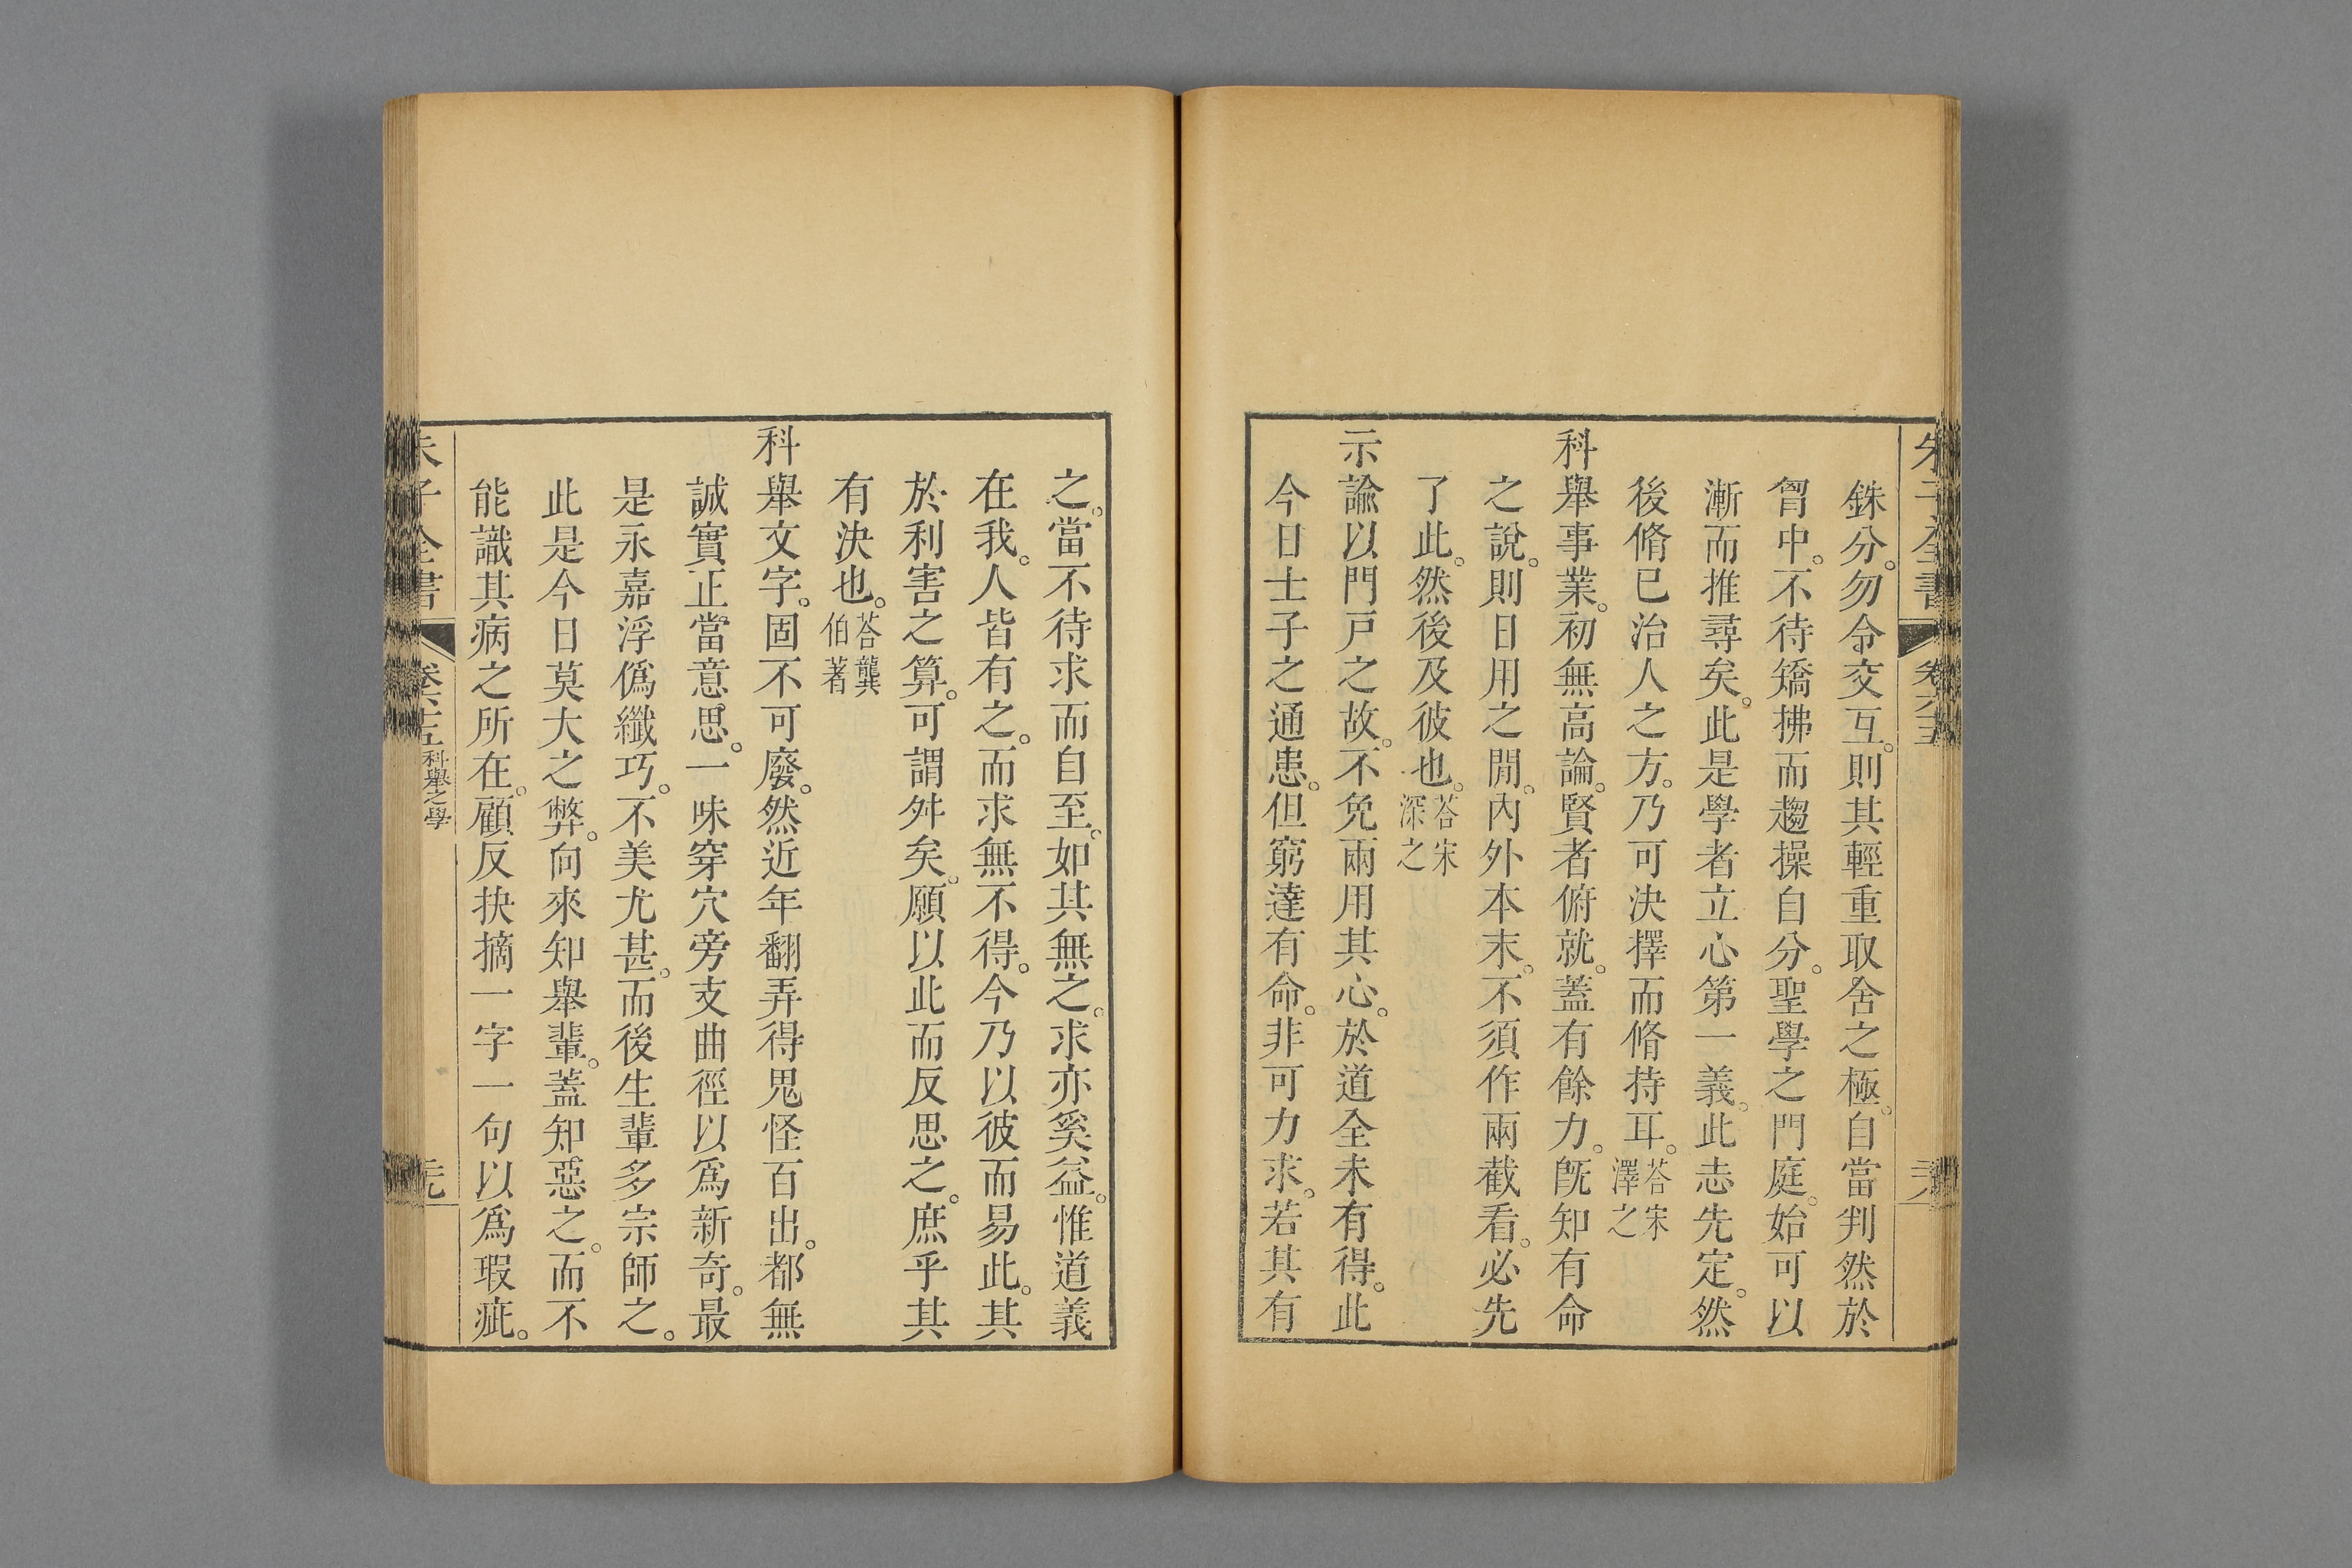 朱子全書 卷六十五
銖分。勿令交互。則其輕重取舍之極。自當判然於
胷中。不待矯拂而趨操自分。聖學之門庭。始可以
漸而推尋矣。此是學者立心第一義。此志先定。然
後脩已治人之方。乃可決擇而脩持耳。荅宋澤之
科舉事業。初無高論。賢者俯就。蓋有餘力。旣知有命
之說。則日用之閒。內外本末。不須作兩截看。必先
了此。然後及彼也。荅宋深之
示諭以門戸之故。不免兩用其心。於道全未有得。此
今日士子之通患。但窮達有命。非可力求。若其有
之。當不待求而自至。如其無之。求亦奚益。惟道義
在我。人皆有之。而求無不得。今乃以彼而易此。其
於利害之算。可謂舛矣。願以此而反思之。庶乎其
有決也。荅龔伯著
科舉文字。固不可廢。然近年翻弄得鬼怪百出。都無
誠實正當意思。一味穿穴旁支曲徑以爲新奇。最
是永嘉浮僞纖巧。不美尤甚。而後生輩多宗師之。
此是今日莫大之弊。向來知舉輩。蓋知惡之。而不
能識其病之所在。顧反抉摘一字一句以爲瑕疵。
朱子全書 卷六十五 科舉之學